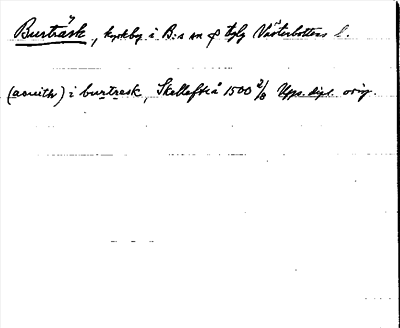 Burträsk, kyrkby i B:s sn o tglg Västerbottens l.
(aenith) i burtresk, Skellefteå 1500 2/8 Upps. dipl. orig.